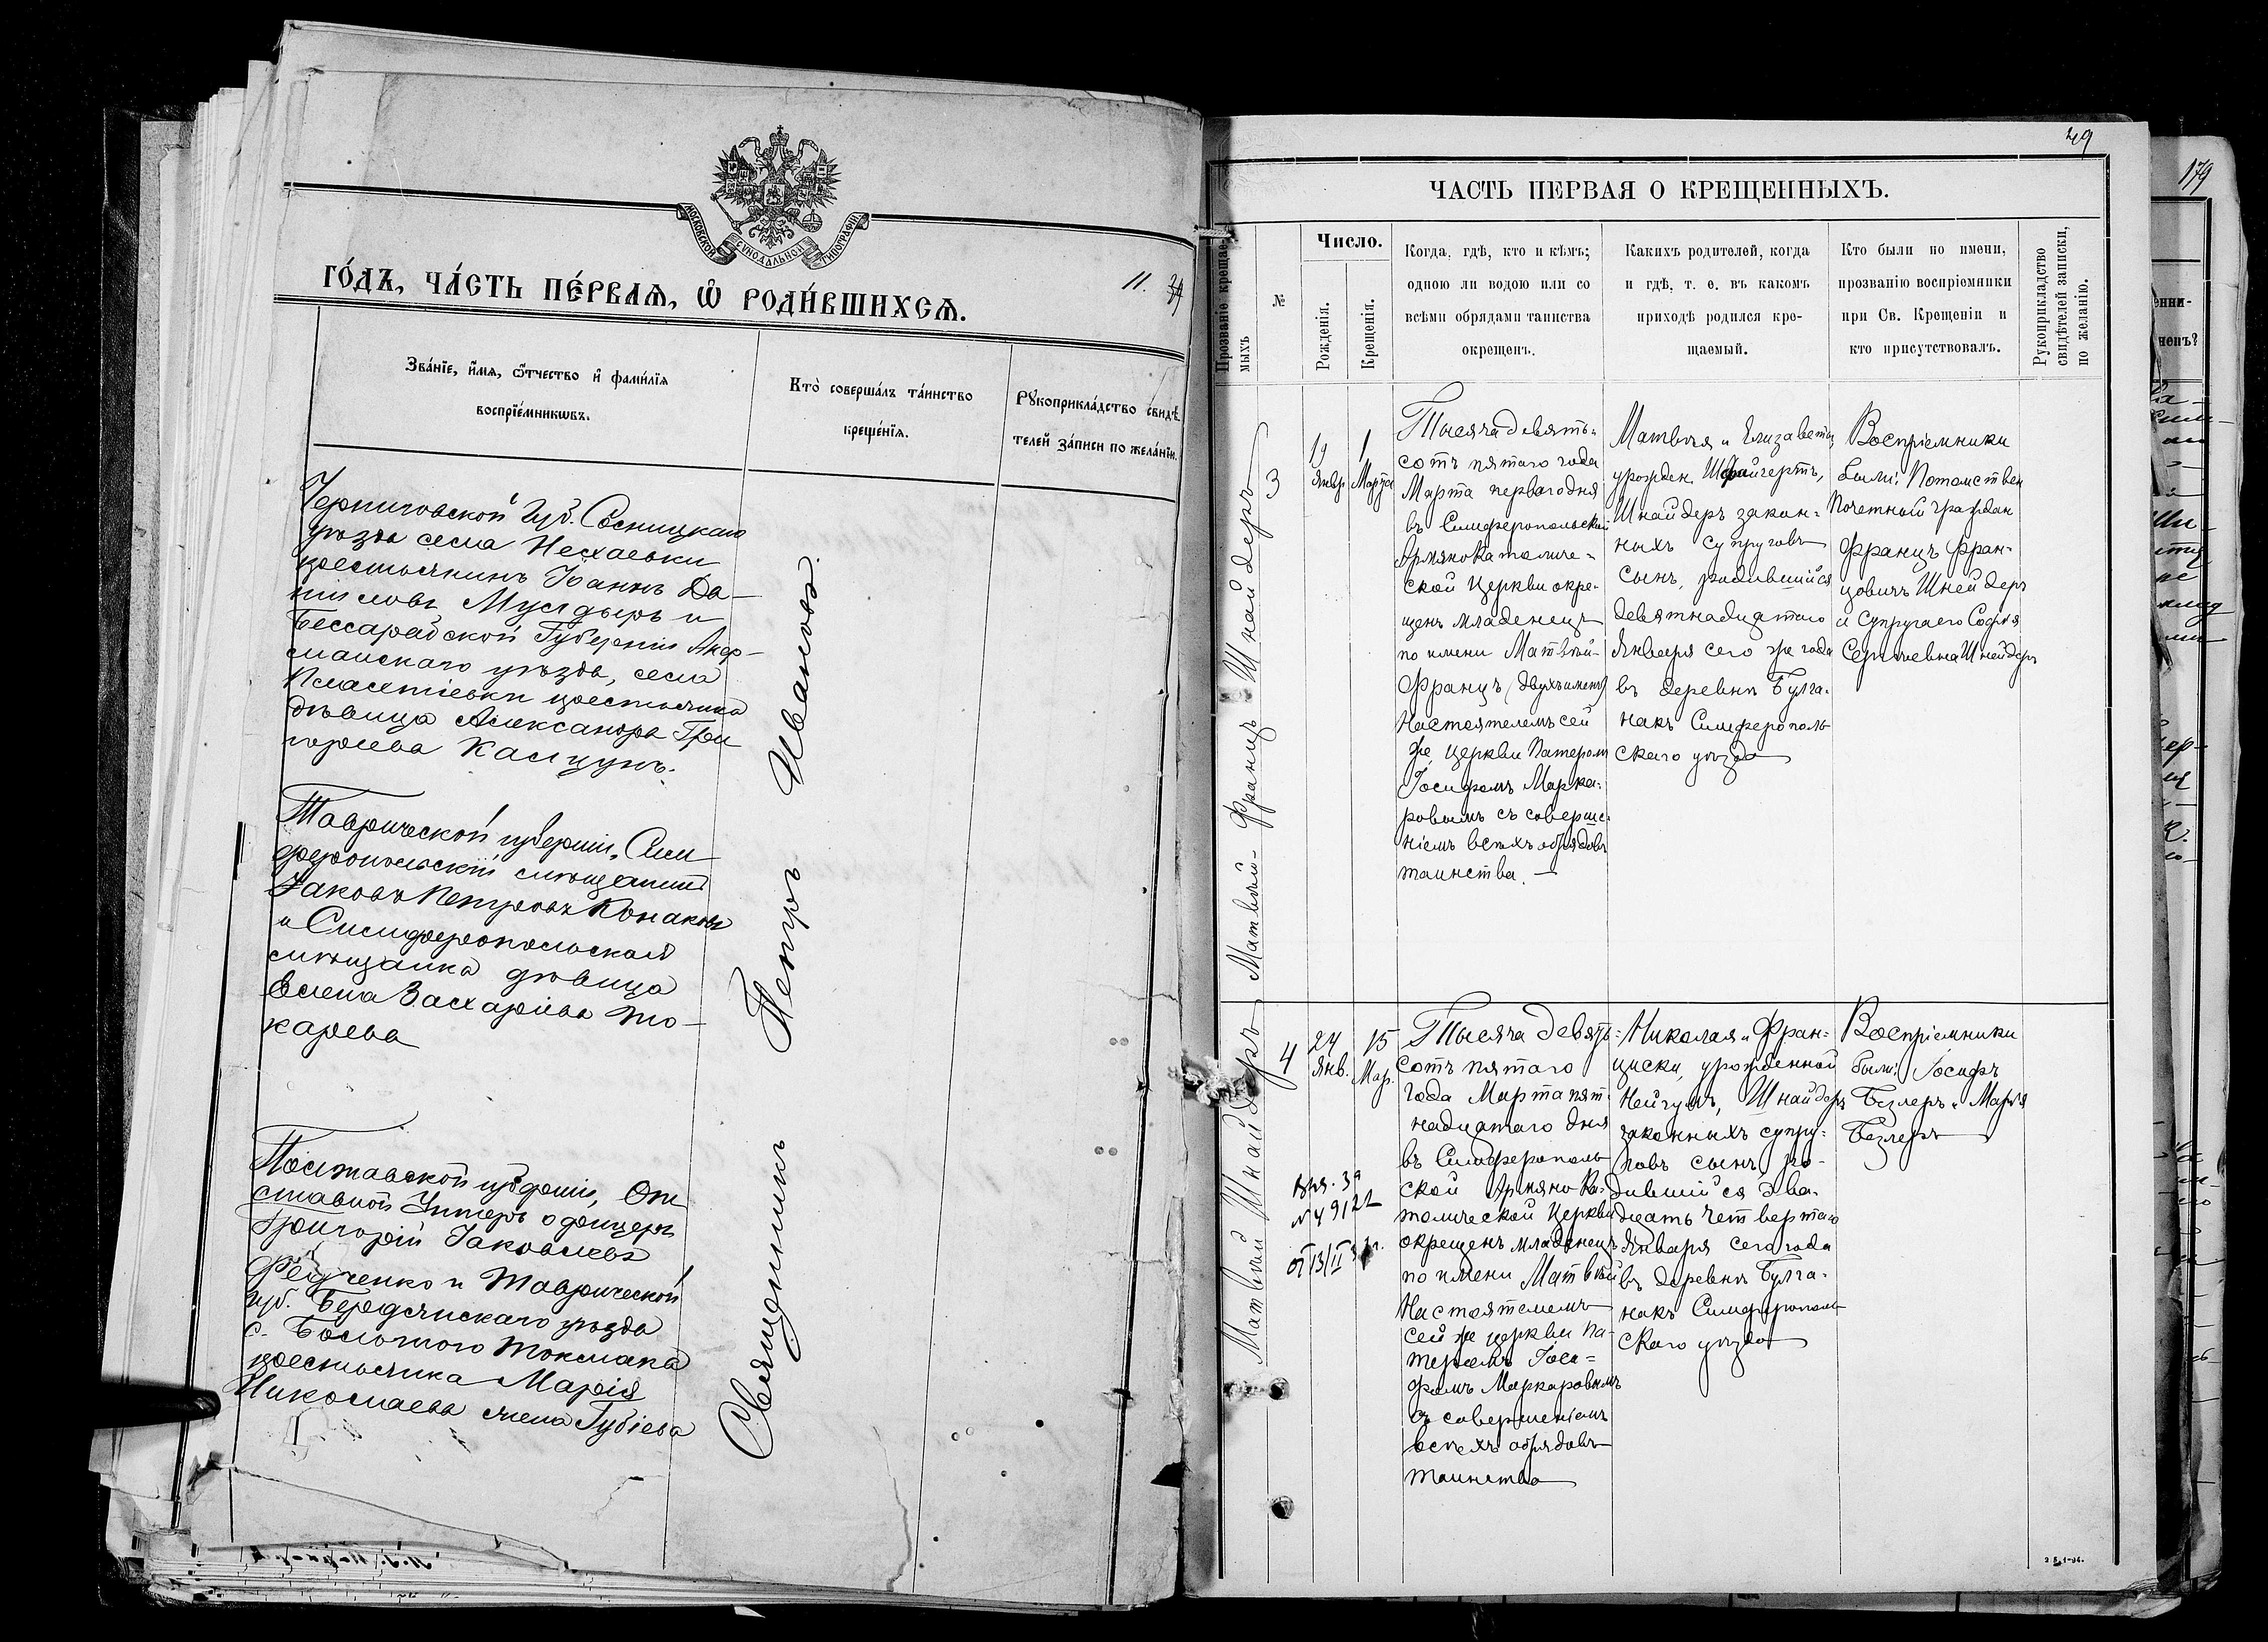 МОСКОВСКОЙ СѴНОДАЛЬНОЙ ТИПОГРАФІИ
ГО́ДЪ, ЧА́СТЬ ПЕ́РВАЯ, Ѽ РОДИ́ВШИХСЯ.
11.
Зва́нїе, и҆́мя, ѻ҆́тчество и҆ фами́лїя
воспрїе́мникѡвъ.
Кто̀ соверша́лъ та́инство
креще́нїя.
Рꙋкоприкла́дство свидѣ́
телей за́писи по жела́нїю.
Черниговской Губ. Сосницкаго
уѣзда села Нехаевки
крестьянинъ Іоаннъ Да-
ниловъ и
Бессарабской Губерніи Акер-
манскаго уѣзда, села
крестьянка
дѣвица Александра Гри
горьева
Таврической губерніи, Сим
феропольскій мѣщанинъ
Іаковъ Петровъ
и Симферопольская
мѣщанка дѣвица
Елена Захаріева То-
карева
Полтавской губерніи, От
ставной Унтеръ офицеръ
Григорій Іаковлевъ
Федченко и Таврической
губ. Бердянскаго уѣзда
с. Большого Токмака
крестьянка Марія
Николаева жена Губіева
Священникъ Петръ Ивановъ
49
179
ЧАСТЬ ПЕРВАЯ О КРЕЩЕННЫХЪ.
Прозваніе крещае-
мыхъ
№
Число.
Рожденія.
Крещенія.
Когда, гдѣ, кто и кѣмъ;
одною ли водою или со
всѣми обрядами таинства
окрещенъ.
Какихъ родителей, когда
и гдѣ, т. е. въ какомъ
приходѣ родился кре-
щаемый.
Кто были по имени,
прозванію воспріемники
при Св. Крещеніи и
кто присутствовалъ.
Рукоприкладство
свидѣтелей записки,
по желанію.
Матвѣй-Францъ Шнайдеръ
3
19
Янвр
1
Марта
Тысяча девять=
сотъ пятаго года
Марта перваго дня
въ Симферопольской
Армяно Католиче=
ской Церкви окре-
щенъ младенецъ
по имени Матвѣй-
Францъ (двухъименъ)
Настоятелемъ сей
же церкви Патеромъ
Іосифомъ Марка-
ровымъ съ соверше-
ніемъ всѣхъ обрядовъ
таинства. —
Матвѣя и Елизаветы,
урожден. Шфайгертъ,
Шнайдеръ закон=
ныхъ супруговъ
сынъ, родившійся
девятнадцатаго
Января сего же года
въ деревнѣ Булга-
накъ Симферополь
скаго уѣзда
Воспріемники
были: Потомствен
Почетный граждан
Францъ Фран-
цовичъ Шнейдеръ
и Супруга его Софія
Сергѣевна Шнейдеръ
Матвѣй Шнайдеръ
4
24
Янв.
15
Мар.
Тысяча девять=
сотъ пятаго
года Марта пят
надцатаго дня
въ Симферополь
ской Армяно Ка-
толической Церкви
окрещенъ младенецъ
по имени Матвѣй
Настоятелемъ
сей же церкви Па-
теромъ Іоси=
фомъ Маркаровымъ
съ совершеніемъ
всѣхъ обрядовъ
таинства
Николая и Фран=
циски, урожденной
Шнайдеръ
законныхъ супру=
говъ сынъ ро-
дившійся два-
дцать четвертаго
Января сего года
въ деревнѣ Булга-
накъ Симферополь
скаго уѣзда
Воспріемники
были: Іосифъ
Бэзлеръ и Марія
Бэзлеръ